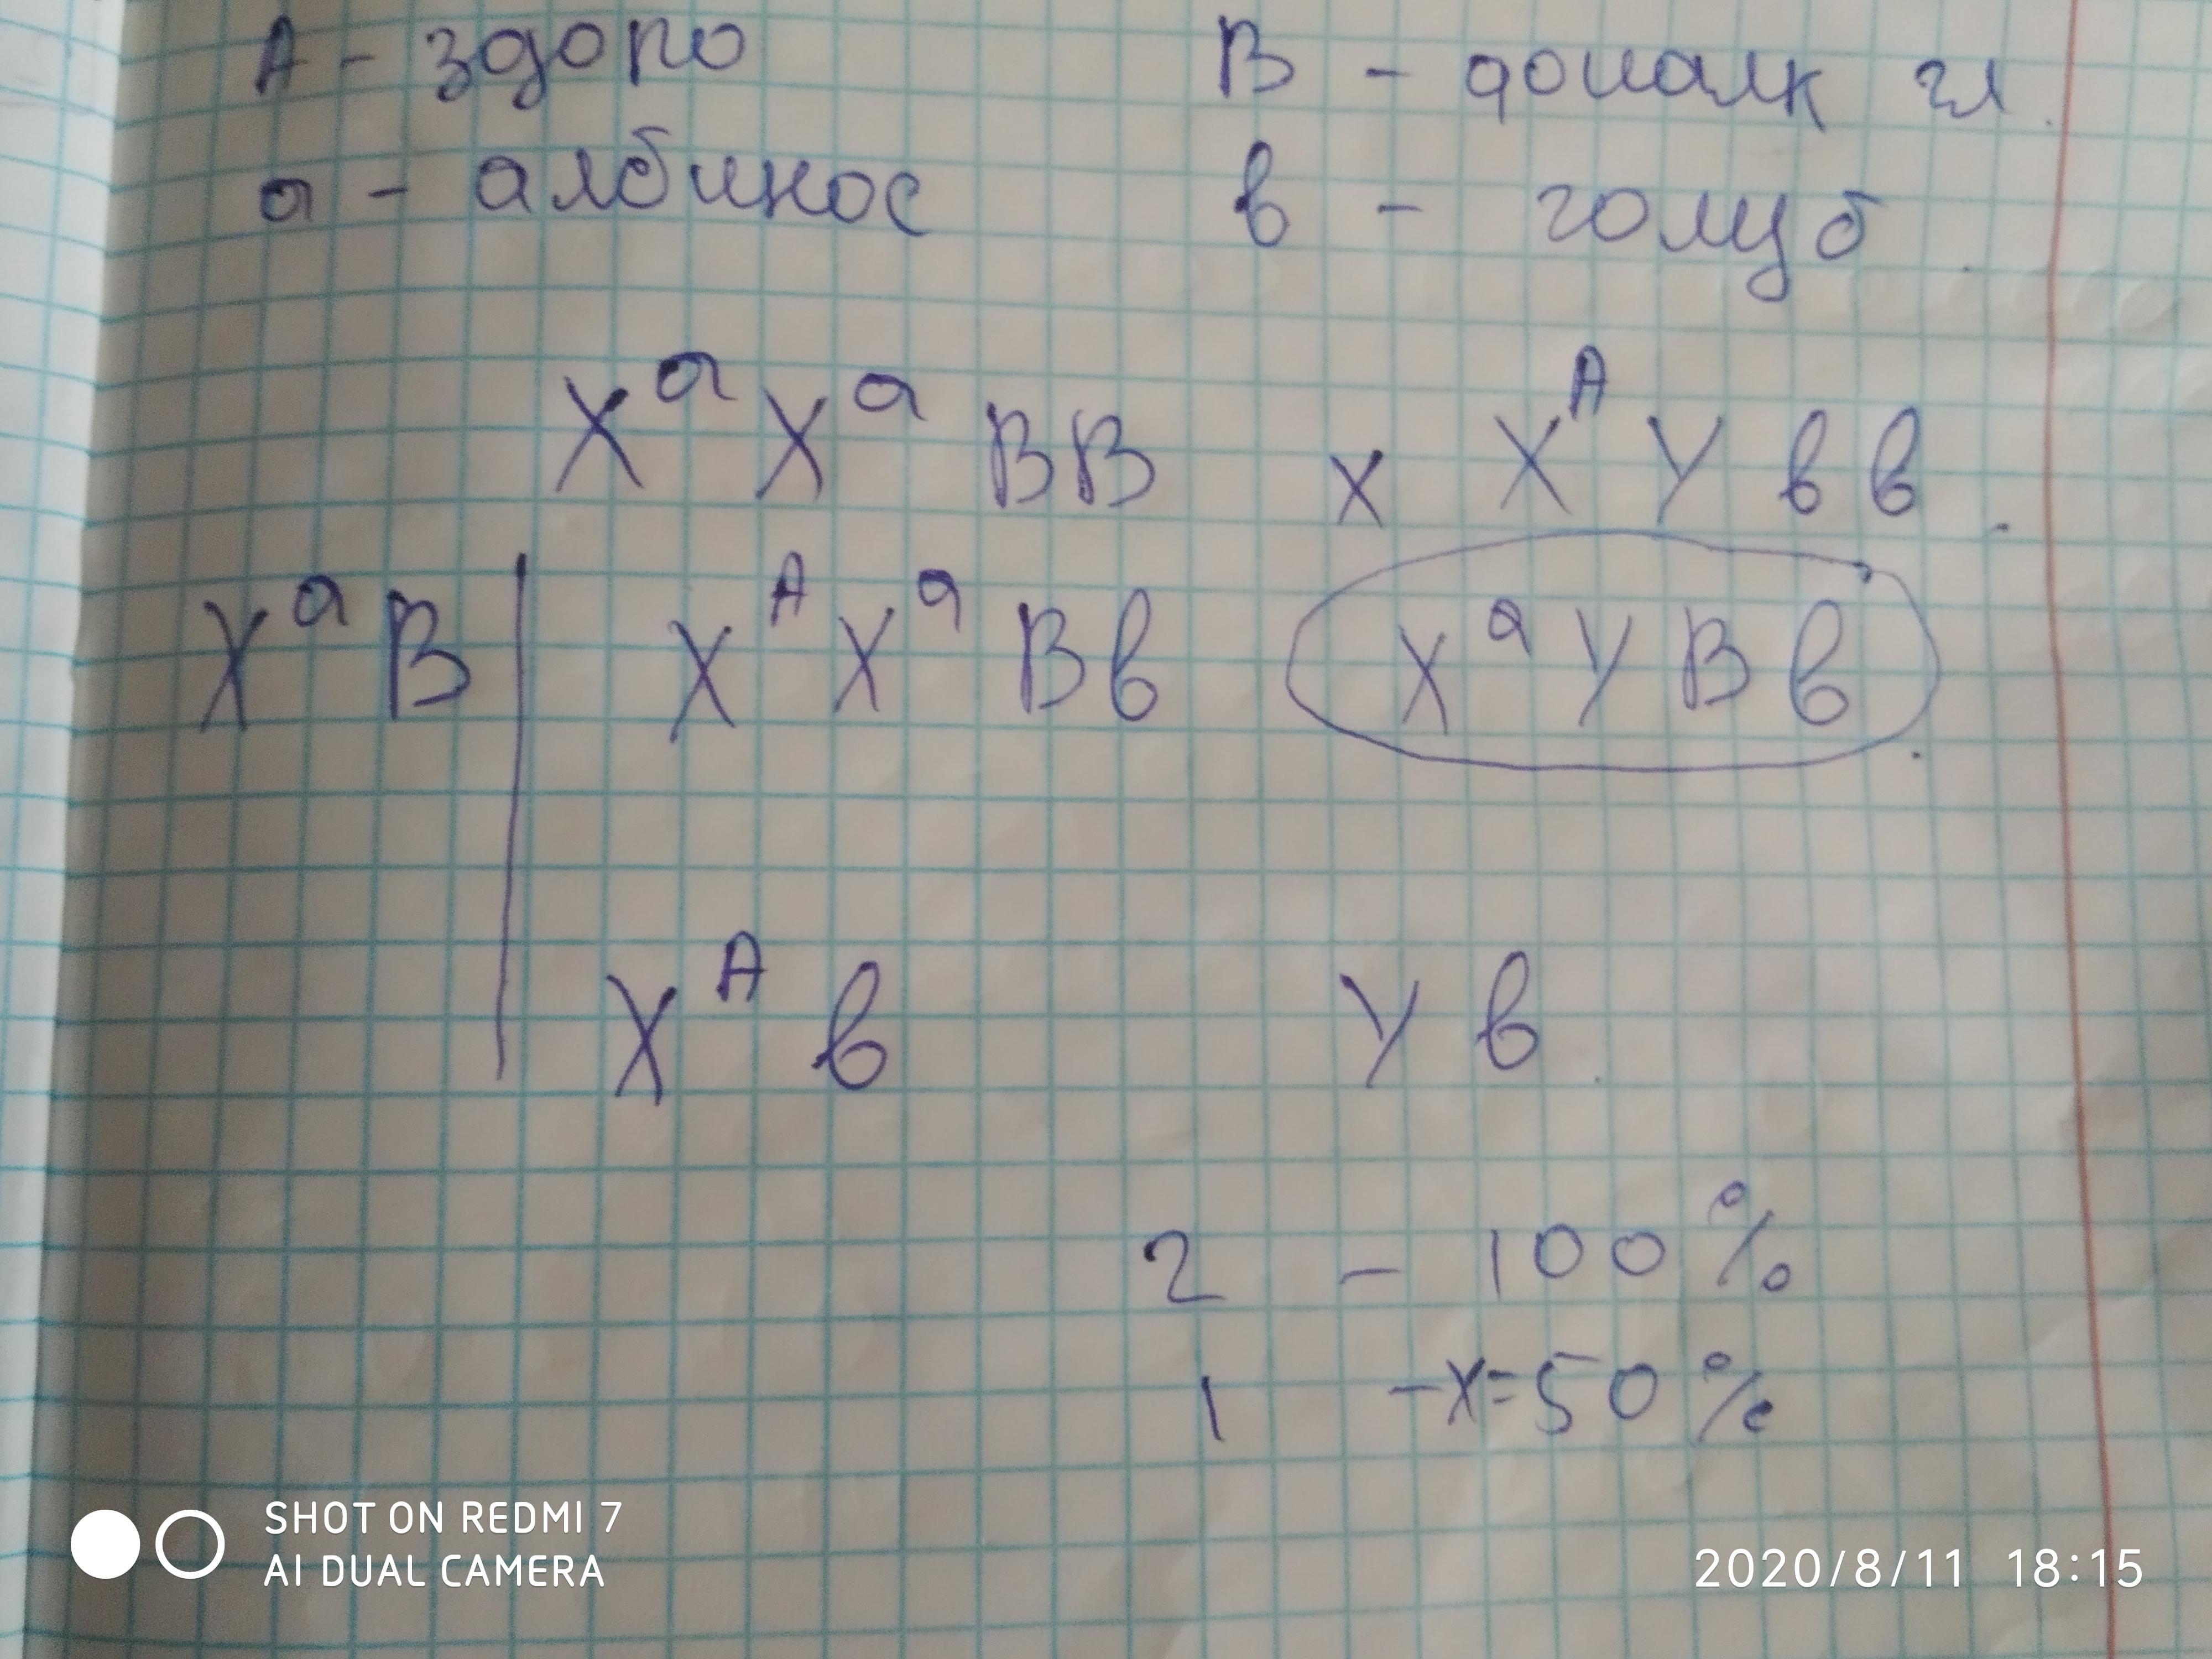 А - здоро В - домалк гл.
а - албинос в - голуб
XᵃXᵃ BB x XᴬY вв.
XᵃB | XᴬXᵃ Bв XᵃY Bв
Xᴬ в Y в
2 - 100%
1 - x=50%
SHOT ON REDMI 7
AI DUAL CAMERA
2020/8/11 18:15